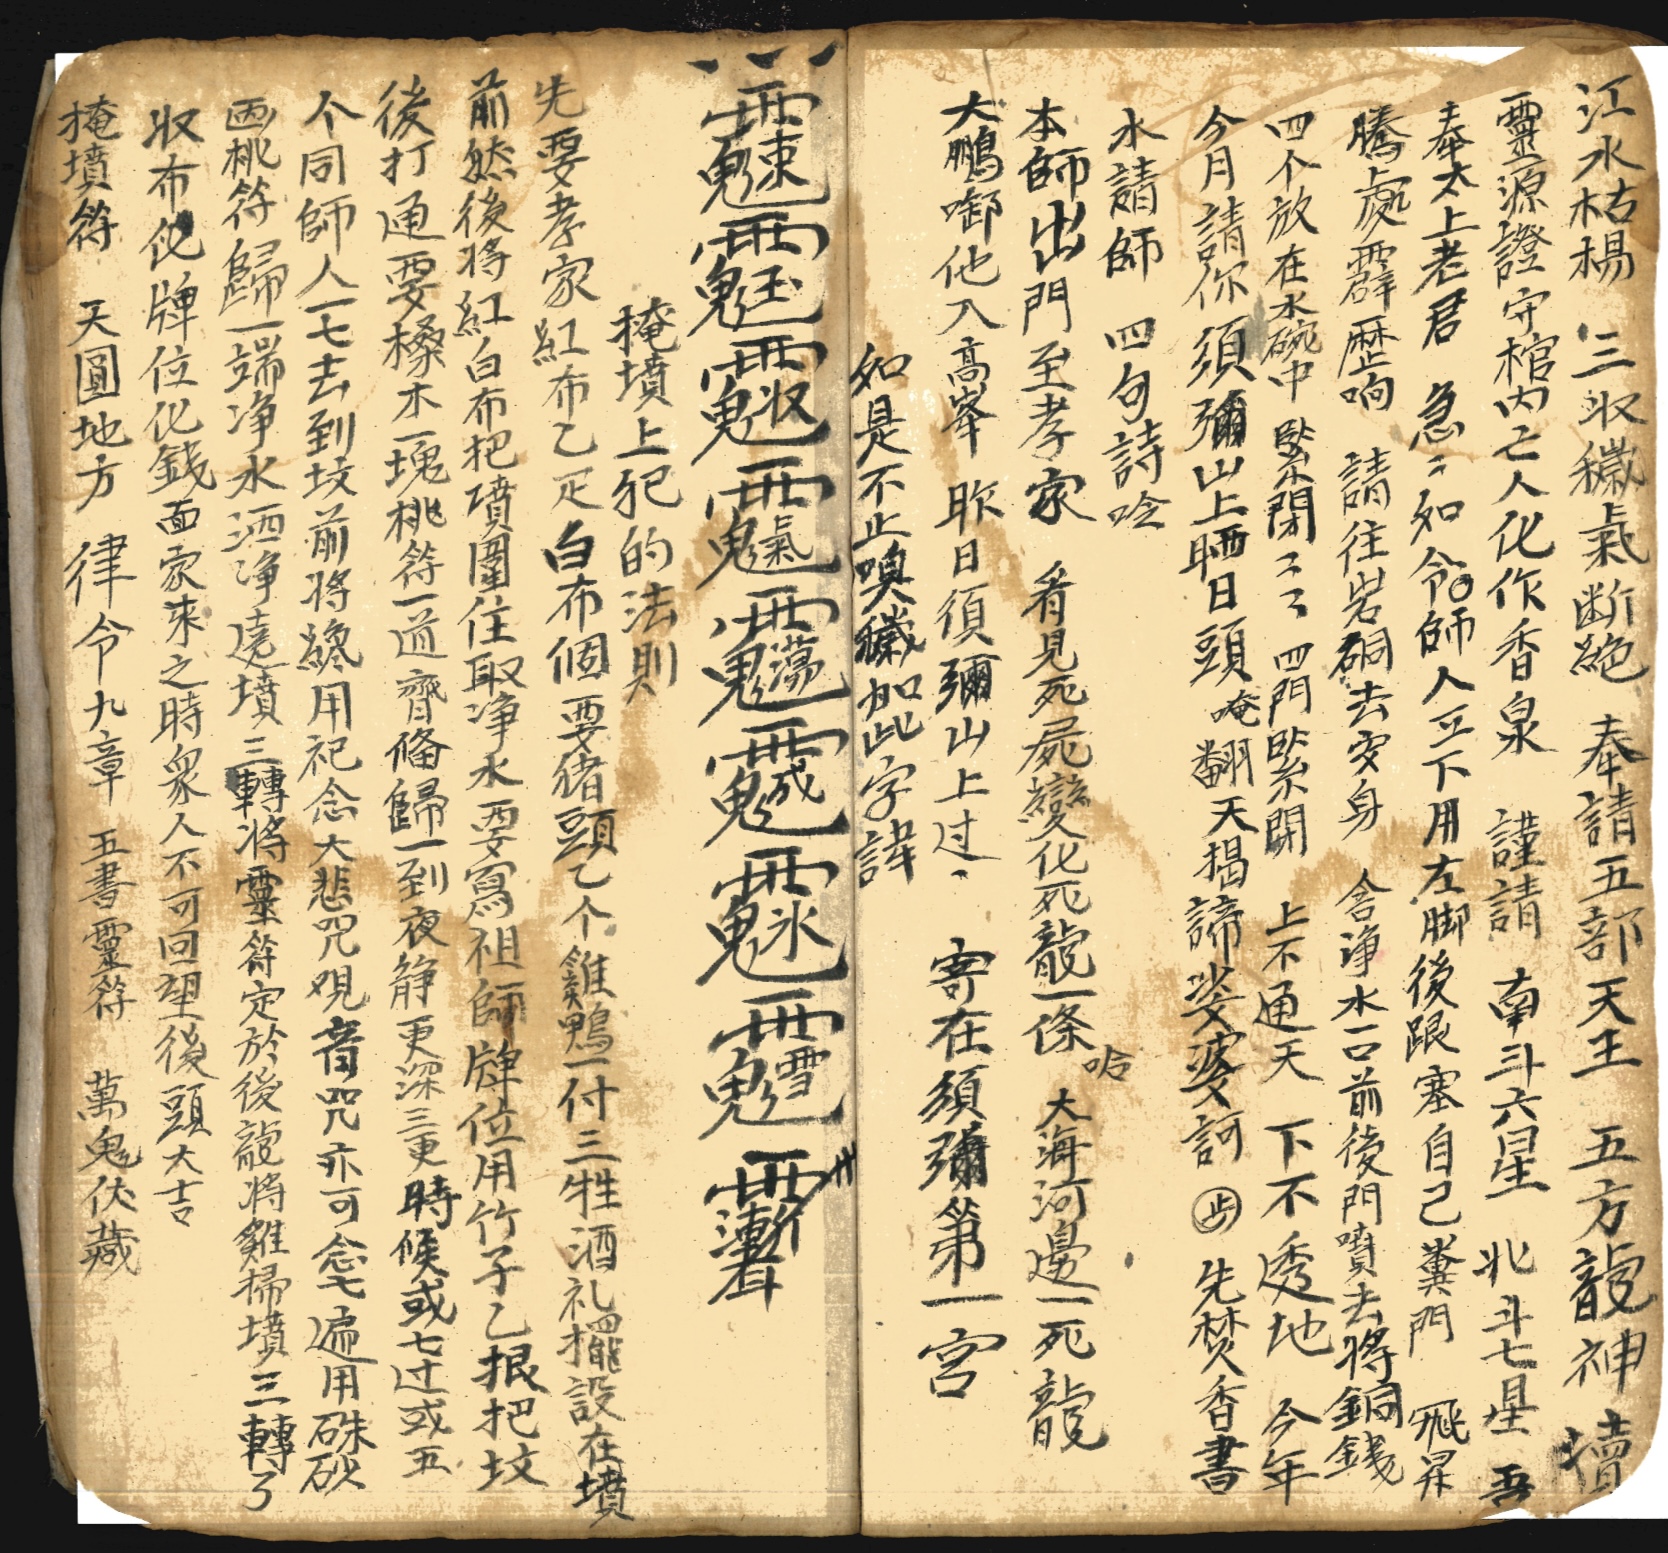 江水枯楊 三收穢氣断絕 奉請五部天王 五方龍神
靈源證守棺内亡人化作香泉 謹請 南斗六星 北斗七星 吾
奉太上老君 急〻如令 師人立下用左脚後跟塞自己糞門 飛昇
騰處霹歷响 請往岩硐去安身 含净水一口前後門噴去將銅錢
四个放在水碗中 緊閉〻〻 四門緊閉 上不通天 下不透地 今年
今月請你須彌山上晒日頭 唵翻天揭諦娑婆訶 先焚香書
水請師 四句詩唸
本師出門至孝家 看見死屍變化死龍一條 哈 大海河邊一死龍
大鵬啣他入高峯 昨日須彌山上过 寄在須彌第一宮
如是不止嗅穢加此字諱
掩墳上犯的法則
先要孝家紅布乙疋 白布個 要猪頭乙个雞鴨一付三牲酒礼擺設在墳
前然後将紅白布把墳圍住取净水要寫祖師牌位用竹子乙根把坟
後打通要樑木一塊桃符一道齊俻歸一到夜静更深三更時候或七过或五
个同師人一七去到坟前将 用祀念大悲咒观音咒亦可念七遍用硃砂
画桃符歸一端净水洒净遶墳三轉将靈符定於後龍将雞掃墳三轉了
収布化牌位化錢面家来之時衆人不可回望後頭大吉
掩墳符 天圓地方 律令九章 五書靈符 萬鬼伏藏